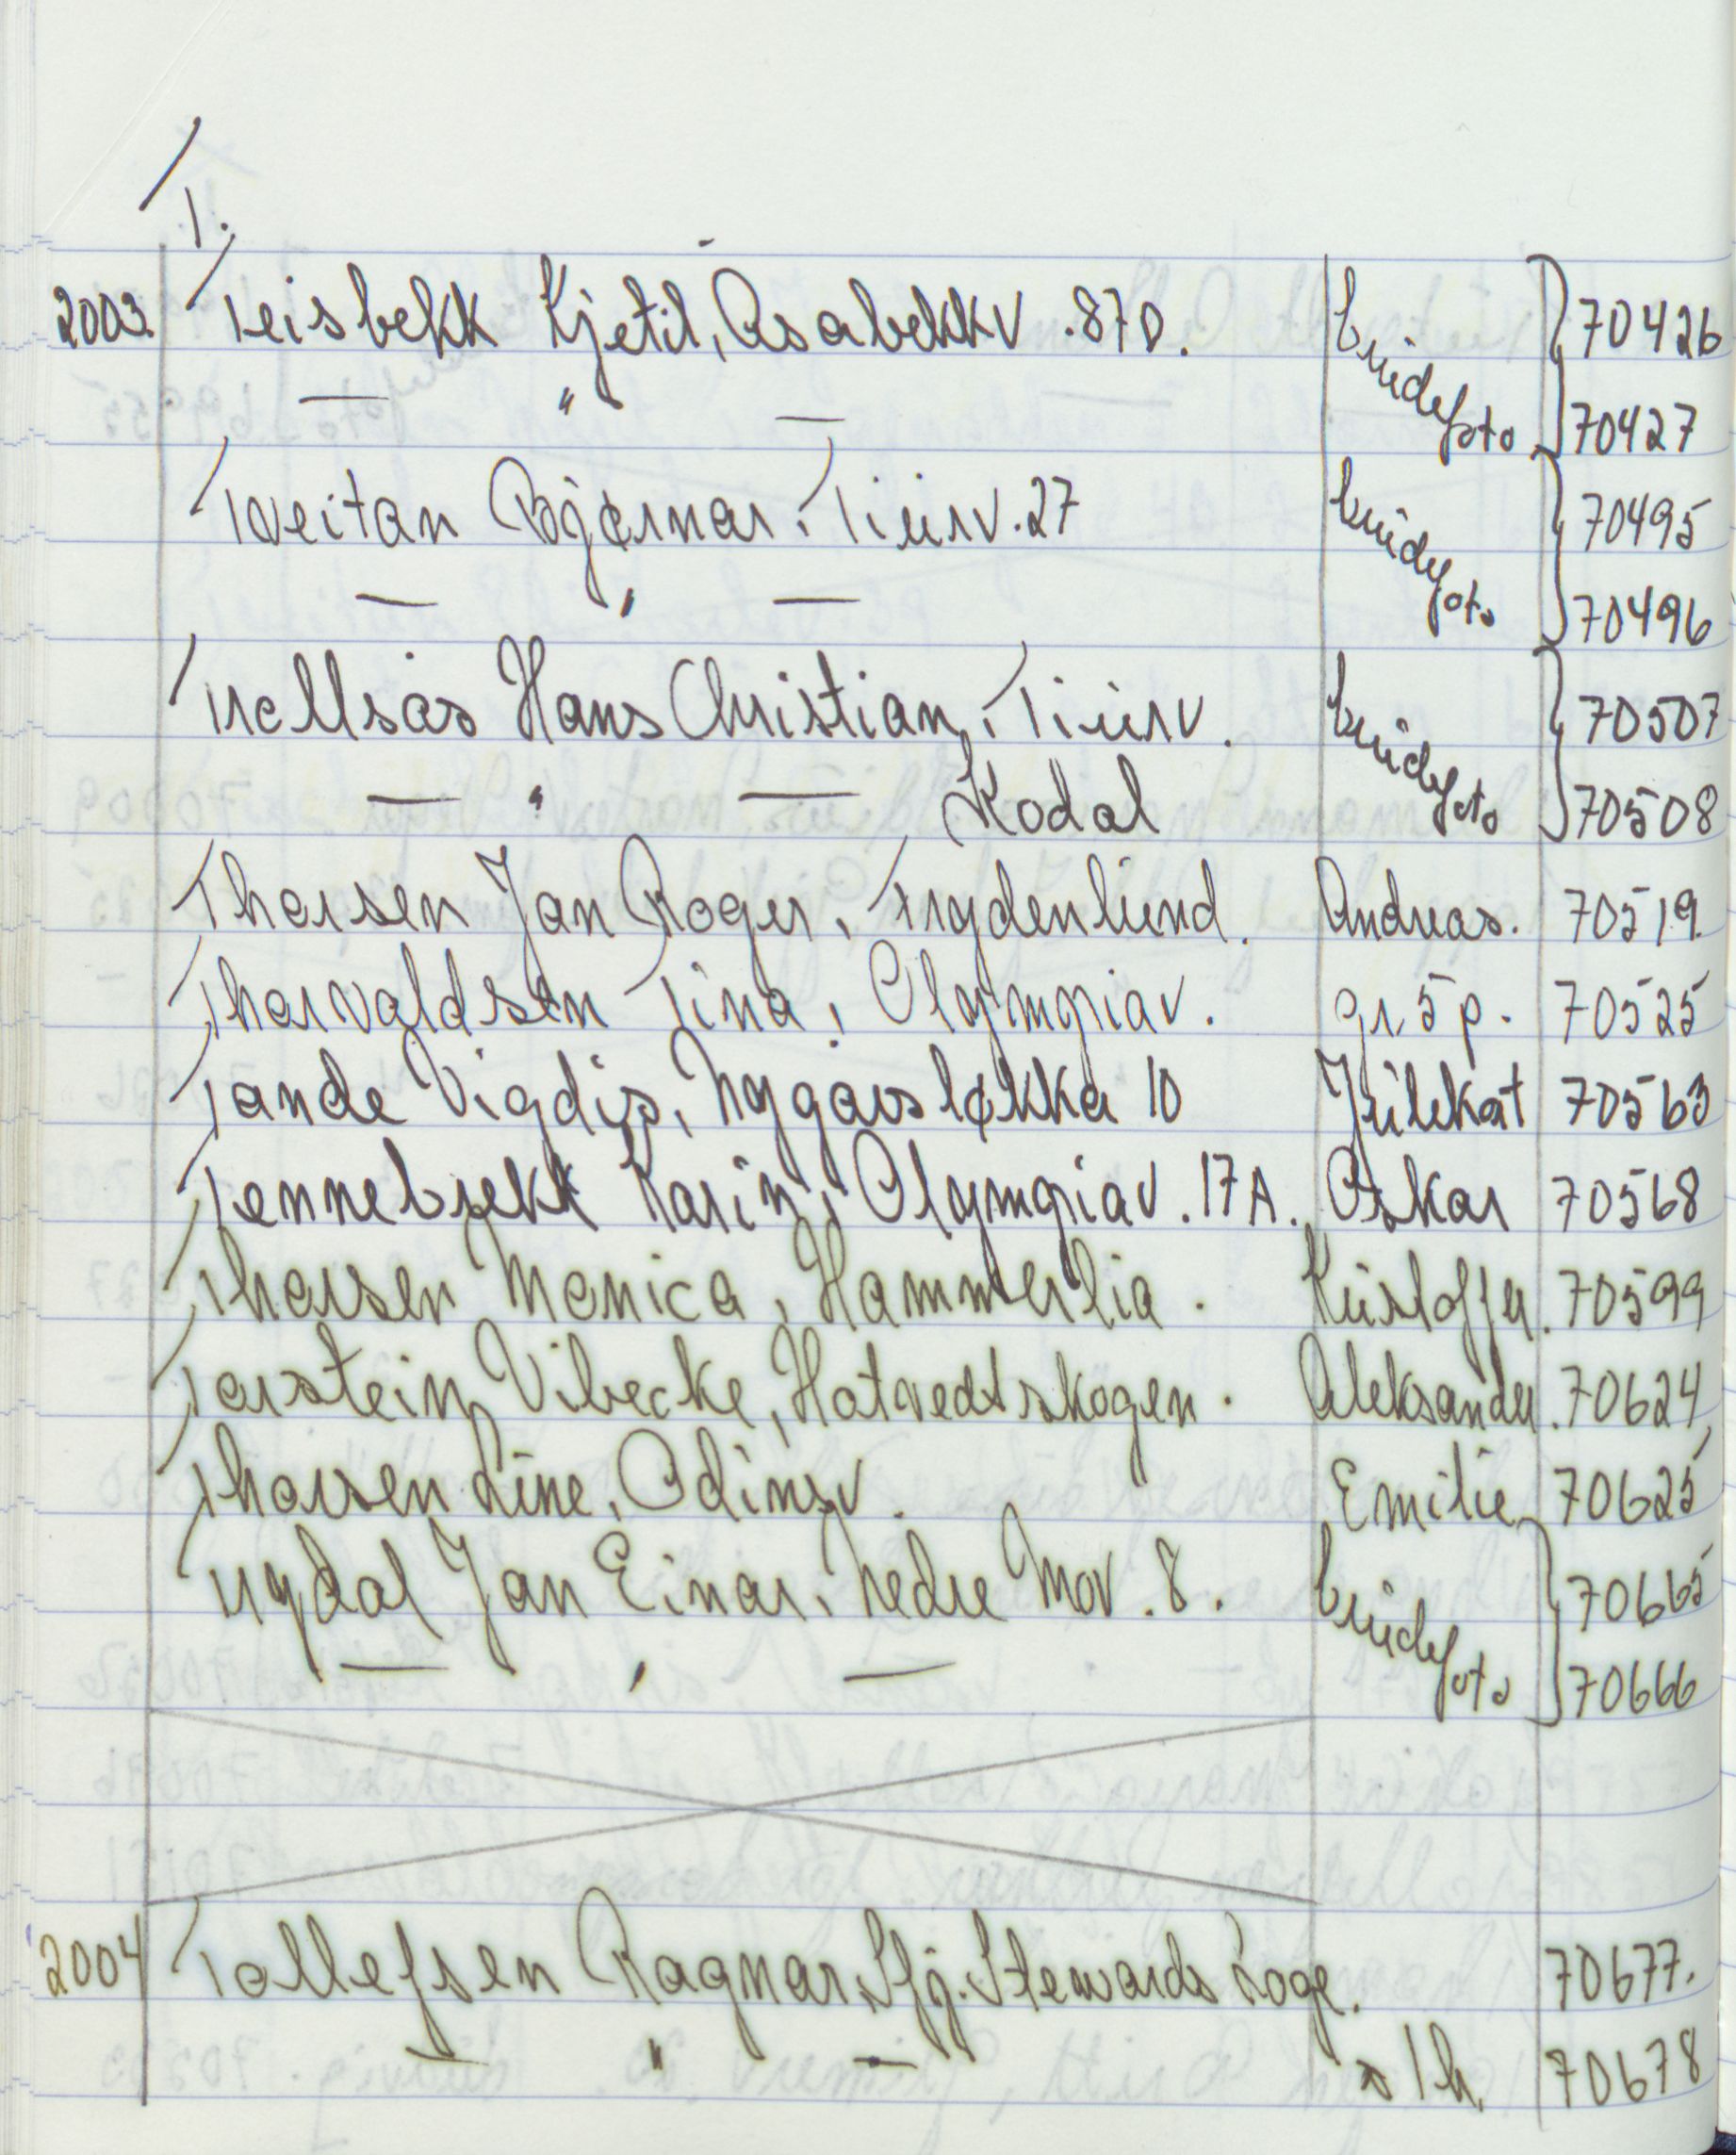 T.
2003. Teisbekk Kjetil, Åsabekkv. 87D. brudefoto 70426
— " — 70427
Tveitan Bjørnar, Tiurv. 27 brudefoto 70495
— " — 70496
Trollsås Hans Christian, Tiurv. brudefoto 70507
— " — Kodal 70508
Thorsen Jan Roger, Frydenlund. Andreas. 70519
Thorvaldsen Tina, Olympiav. gr 5 p. 70525
Tande Vigdis, Nygårsløkka 10 Julekat 70563
Tennebrekk Karin, Olympiav. 17A. Oskar 70568
Thorsen Monica, Hammerlia. Kristoffer. 70599
Torstein Vibecke, Hotvedtskogen. Aleksander. 70624
Thorsen Line, Odinsv. Emilie 70625
Trydal Jan Einar, Nedre Mov. 8. brudefoto 70665
— " — 70666
2004 Tollefsen Ragnar, Sfj. Stewards Loge. 70677.
— " — s/h. 70678